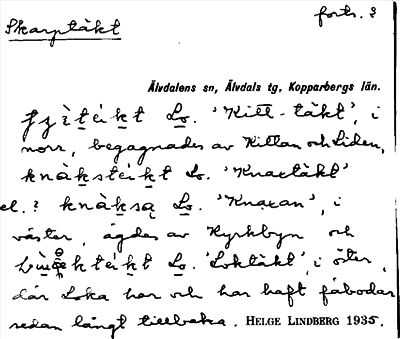 forts. 3
Skarptäkt
Älvdalens sn, Älvdals tg, Kopparbergs län.
Lo. 'Kitt-täkt', i
norr, begagnades av Kittan och Liden,
knàkstéikt Lo. 'Knaxtäkt'
el. ? knàksą Lo. 'Knaxan', i
väster, ägdes av Kyrkbyn och
Lo. 'Loktäkt', i öster,
där Loka har och har haft fäbodar
sedan långt tillbaka. HELGE LINDBERG 1935.